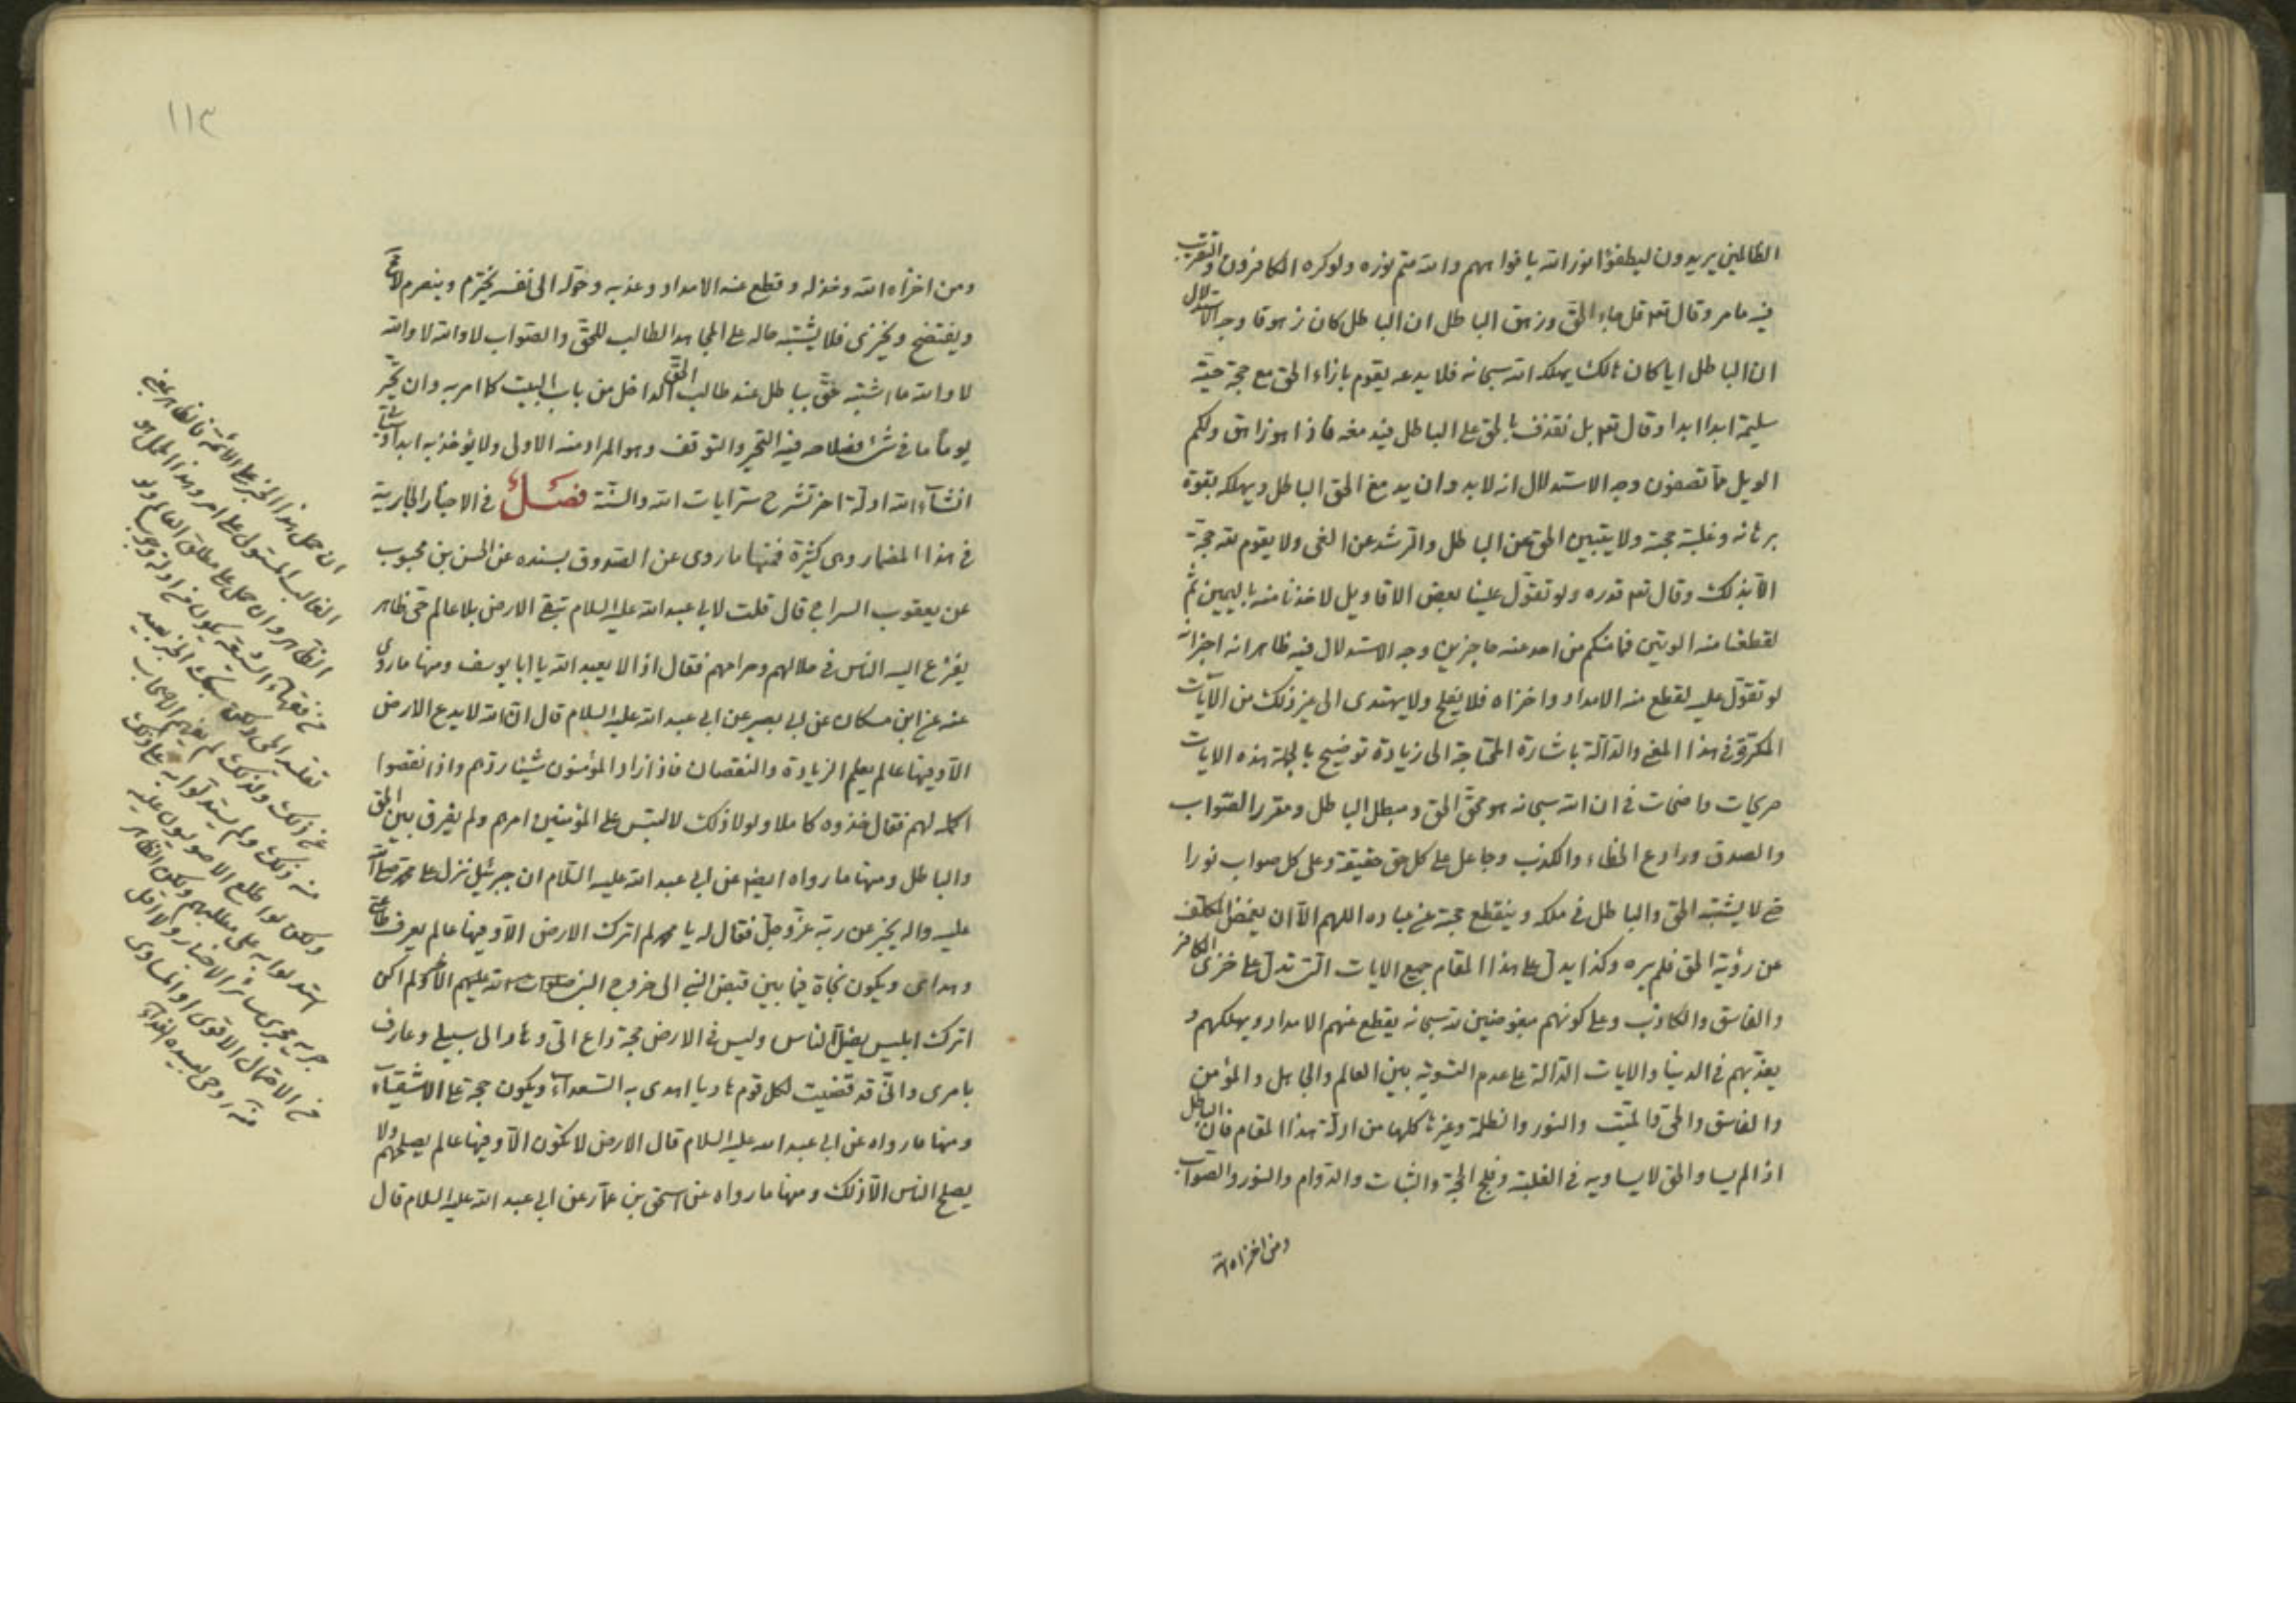 الظالمين يريدون ليطفؤا نور الله بافواههم والله متم نوره ولو كره الكافرون والتقريب
فيه ما مر وقال تعه قل جاء الحق وزهق الباطل ان الباطل كان زهوقا وجه الاستدلال
ان الباطل ايا كان هالك يهلكه الله سبحانه فلا يدعه يقوم بازاء الحق مع حجة حيّة
سليمة ابدا ابدا وقال تعه بل نقذف بالحق على الباطل فيدمغه فاذا هو زاهق ولكم
الويل مما تصفون وجه الاستدلال انه لا بد وان يدمغ الحق الباطل ويهلكه بقوة
برهانه وغلبة حجته ولا يتبين الحق عن الباطل والرشد عن الغى ولا يقوم بعد حجة
الا بذلك وقال تعه قدره ولو تقوّل علينا بعض الاقاويل لاخذنا منه باليمين ثم
لقطعنا منه الوتين فما منكم من احد عنه حاجزين وجه الاستدلال فيه ظاهر انه اجزاه
لو تقوّل عليه لقطع منه الامداد واخزاه فلا يفلح ولا يهتدى الى غير ذلك من الآيات
المكررة فى هذا المعنى والدالة باشارة المحتاجة الى زيادة توضيح بالجملة هذه الايات
صريحات واضحات فى ان الله سبحانه هو محق الحق ومبطل الباطل ومقرر الصواب
والصدق ورادع الخطاء والكذب وجاعل على كل حق حقيقة وعلى كل صواب نورا
حتى لا يشتبه الحق والباطل فى ملكه وينقطع حجة عن عباده اللهم الا ان يغمض المكلف
عن رؤية الحق فلم يره وكذا يدل على هذا المقام جميع الايات التى تدل على خزى الكافر
والفاسق والكاذب وعلى كونهم مبغوضين لله سبحانه يقطع عنهم الامداد ويهلكهم و
يعذبهم فى الدنيا والايات الدالة على عدم التسوية بين العالم والجاهل والمؤمن
والفاسق والحى والميّت والنور والظلمة وغيرها كلها من ادلة هذا المقام فان الباطل
اذا لم يساو الحق لا يساويه فى الغلبة وفلج الحجة والثبات والدوام والنور والصواب
ومن اخزاه الله
١١٣
ومن اخزاه الله وخذله وقطع عنه الامداد وعذبه وخوّله الى نفسه يخترم وينصرم لا محة
ويفتضح ويخزى فلا يشتبه حاله على المجاهد الطالب للحق والصواب لا والله لا والله
لا والله ما اشتبه حق بباطل عند طالب الحق الداخل من باب البيت كما امر به وان تحيّر
يوماً ما فى شئ فصلاحه فيه التحير والتوقف وهو المراد منه الاولى ولا يؤخذ به ابدا وسيأتى
انشاء الله ادلة اخر تشرح ستر ايات الله والسنّة فصل فى الاخبار الجارية
فى هذا المضمار وهى كثيرة فمنها ما روى عن الصدوق بسنده عن الحسن بن محبوب
عن يعقوب السراج قال قلت لابى عبد الله عليه السلام تبقى الارض بلا عالم حى ظاهر
يفزع اليه الناس فى حلالهم وحرامهم فقال اذا لا يعبد الله يا ابا يوسف ومنها ما روى
عنه عن ابن مسكان عن ابى بصير عن ابى عبد الله عليه السلام قال ان الله لا يدع الارض
الا وفيها عالم يعلم الزيادة والنقصان فاذا زاد المؤمنون شيئا ردهم واذا نقصوا
اكمله لهم فقال خذوه كاملا ولولا ذلك لالتبس على المؤمنين امرهم ولم يفرق بين الحق
والباطل ومنها ما رواه ايضا عن ابى عبد الله عليه السلام ان جبرئيل نزل على محمد صلى الله
عليه واله يخبر عن ربه عزّ وجلّ فقال له يا محمد لم اترك الارض الا وفيها عالم يعرف طاعتى
وهداى ويكون نجاة فيما بين قبض النبى الى خروج النبى صلوات الله عليهم الاخر ولم اكن
اترك ابليس يضل الناس وليس فى الارض حجة وداع الىّ وهاد الى سبيلى وعارف
بامرى وانى قد قضيت لكل قوم هاديا اهدى به السعداء ويكون حجة على الاشقياء
ومنها ما رواه عن ابى عبد الله عليه السلام قال الارض لا تكون الا وفيها عالم يصلحهم ولا
يصلح الناس الا ذلك ومنها ما رواه عن اسحق بن عمار عن ابى عبد الله عليه السلام قال
ان حمل هذا الخبر على الائمة فالظاهر
الغائب المستولى على امره وهذا الحمل هو
الظاهر وان حمل على مطلق العالم ولو
من فقهاء الشيعة يكون من ادلة وجوب
تقليد الحى ولكن الخبر بعيد
عن ذلك ولذلك لم يفهم الاصحاب
منه ذلك ولم يستدلوا به على ذلك
ولكن لو اطلع الاصوليون عليه
استدلوا به على مطلبهم ولكن الظاهر
جريه مجرى سائر الاخبار ولا اقل
من الاحتمال الاقوى او المساوى
منه روحى لسيده الفداء